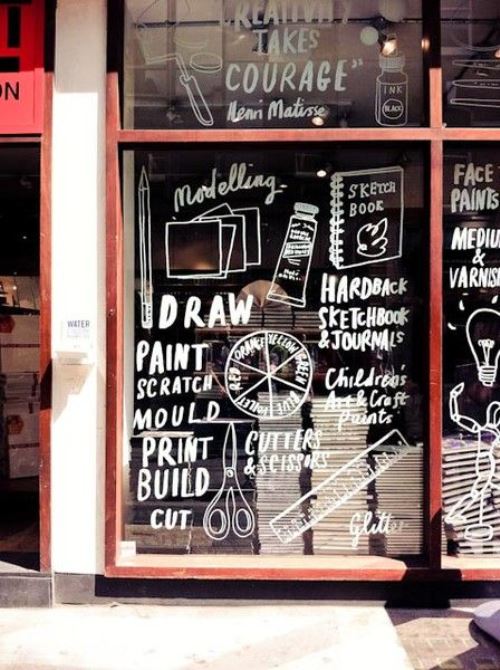 "CREATIVITY
TAKES
COURAGE"
Henri Matisse
INK
BLACK
N
WATER
modelling
SKETCH
BOOK
DRAW
PAINT
SCRATCH
MOULD
PRINT
BUILD
CUT
RED ORANGE YELLOW GREEN BLUE VIOLET
CUTTERS
& SCISSORS
HARDBACK
SKETCHBOOK
& JOURNALS
Children's
Art & Craft
paints
Glitter
FACE
PAINTS
MEDIU
&
VARNIS